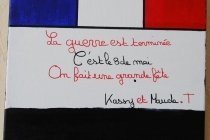 La guerre est terminée
C'est le 8 de mai
On fait une grande fête
Kassy et Maude.T